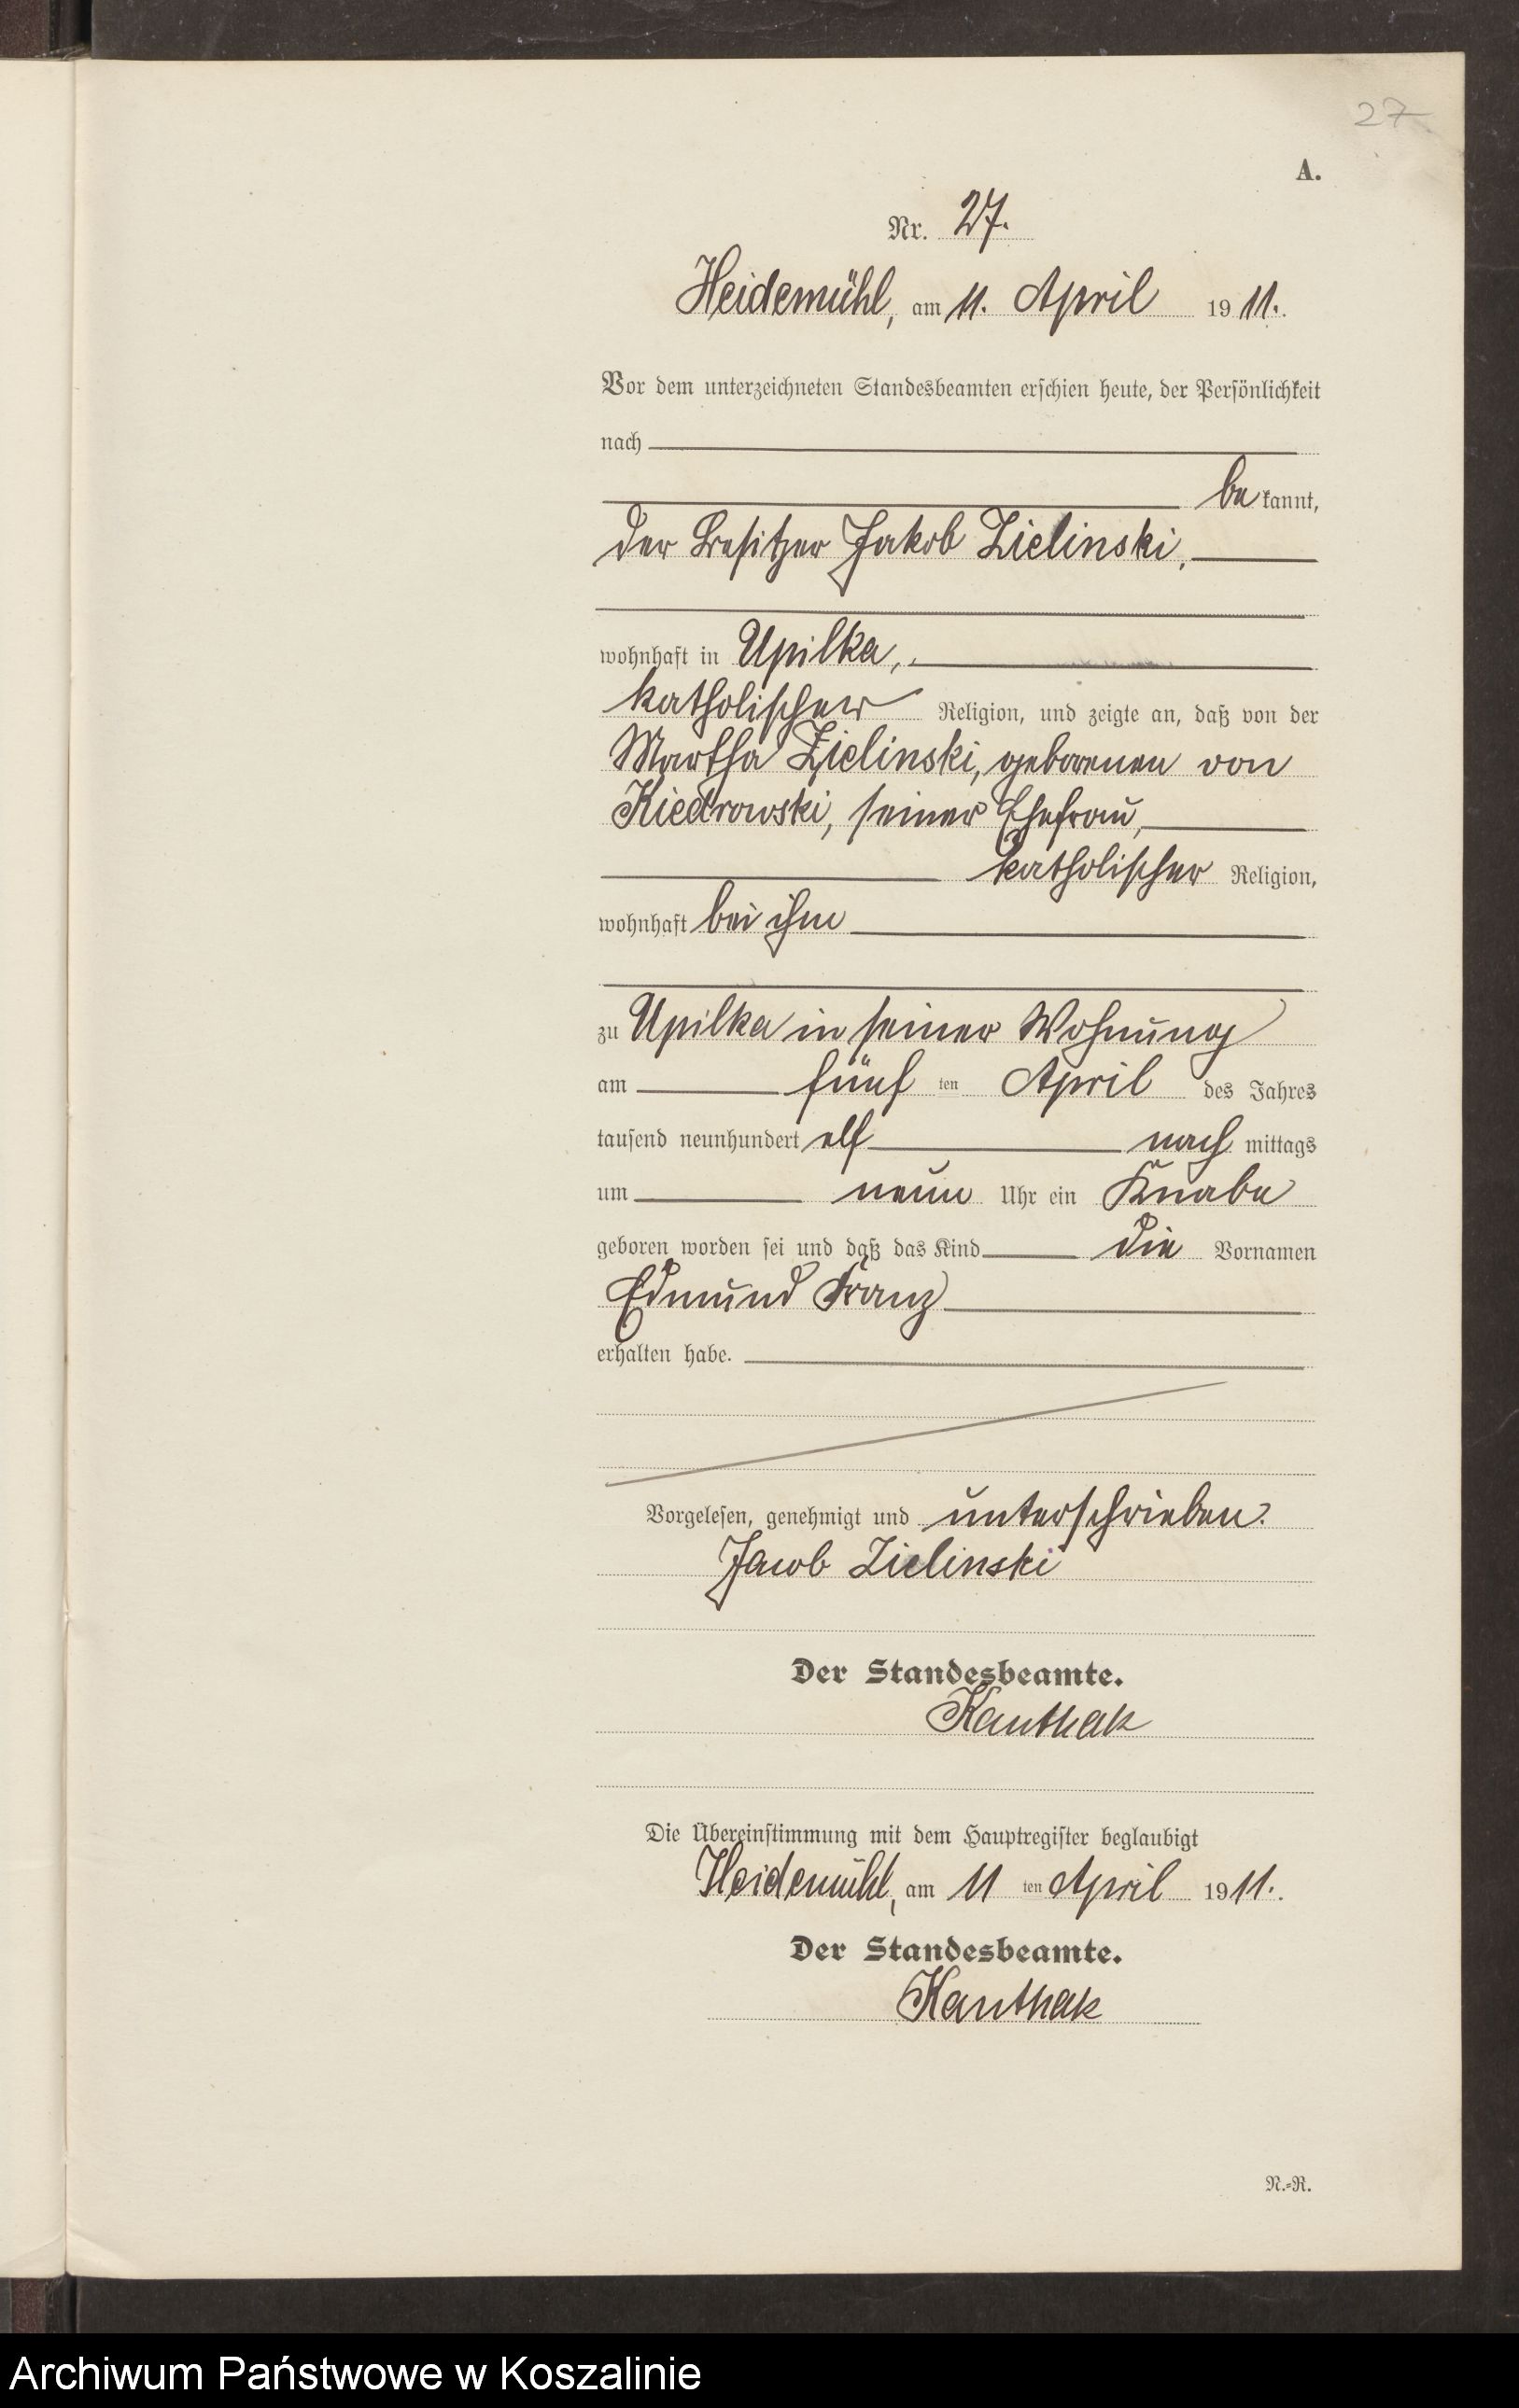 27
A.
Nr. 27.
Heidemühl, am 11. April 1911.
Vor dem unterzeichneten Standesbeamten erschien heute, der Persönlichkeit
nach
be kannt,
der Besitzer Jakob Zielinski,
wohnhaft in Upilka,
katholischer Religion, und zeigte an, daß von der
Martha Zielinski, geborenen von
Kiedrowski, seiner Ehefrau,
katholischer Religion,
wohnhaft bei ihm
zu Upilka in seiner Wohnung
am fünf ten April des Jahres
tausend neunhundert elf nach mittags
um neun Uhr ein Knabe
geboren worden sei und daß das Kind die Vornamen
Edmund Franz
erhalten habe.
Vorgelesen, genehmigt und unterschrieben.
Jacob Zielinski
Der Standesbeamte.
Kanthak
Die Übereinstimmung mit dem Hauptregister beglaubigt
Heidemühl, am 11 ten April 1911.
Der Standesbeamte.
Kanthak
N.=R.
Archiwum Państwowe w Koszalinie